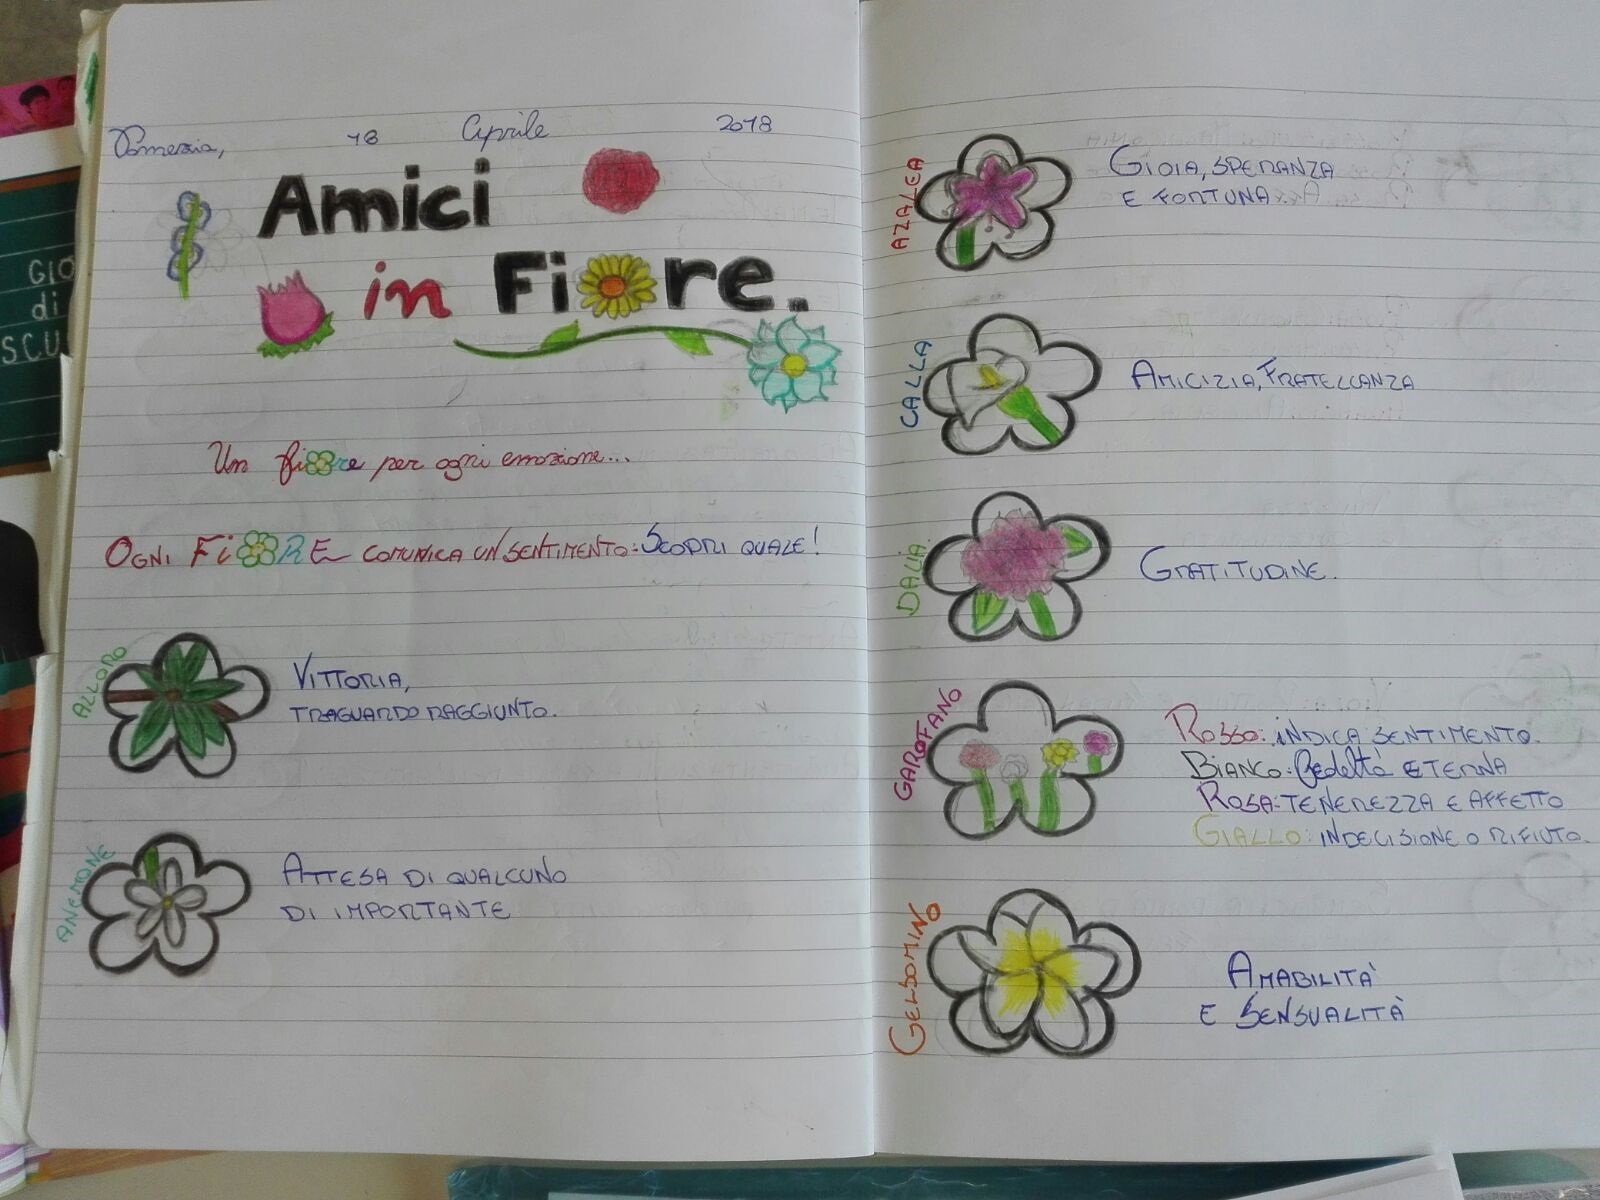 Pomezia, 18 Aprile 2018
Amici
in Fiore.
Un fiore per ogni emozione...
OGNI FiORE COMUNICA UN SENTIMENTO: SCOPRI QUALE!
ALLORO
VITTORIA,
TRAGUARDO RAGGIUNTO.
ANEMONE
ATTESA DI QUALCUNO
DI IMPORTANTE
AZALEA
GIOIA, SPERANZA
E FORTUNA
CALLA
AMICIZIA, FRATELLANZA
DALIA
GRATITUDINE.
GAROFANO
ROSSO: INDICA SENTIMENTO.
BIANCO: Fedeltà ETERNA
ROSA: TENEREZZA E AFFETTO
GIALLO: INDECISIONE O RIFIUTO.
GELSOMINO
AMABILITÀ
E SENSUALITÀ
GIO
di
SCU